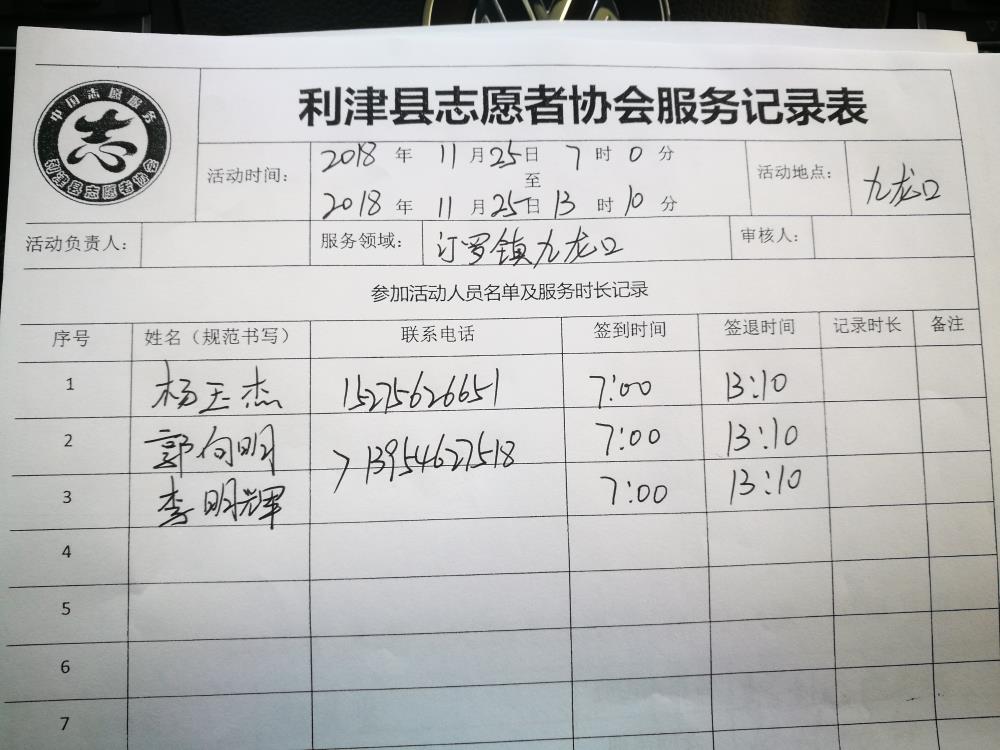 中国志愿服务
志
利津县志愿者协会
利津县志愿者协会服务记录表
活动时间： 2018 年 11 月 25 日 7 时 0 分
至
2018 年 11 月 25 日 13 时 10 分
活动地点： 九龙口
活动负责人： 服务领域： 汀罗镇九龙口 审核人：
参加活动人员名单及服务时长记录
序号 姓名（规范书写） 联系电话 签到时间 签退时间 记录时长 备注
1 杨玉杰 15275626651 7:00 13:10
2 郭向明 13954627518 7:00 13:10
3 李明辉 7:00 13:10
4
5
6
7